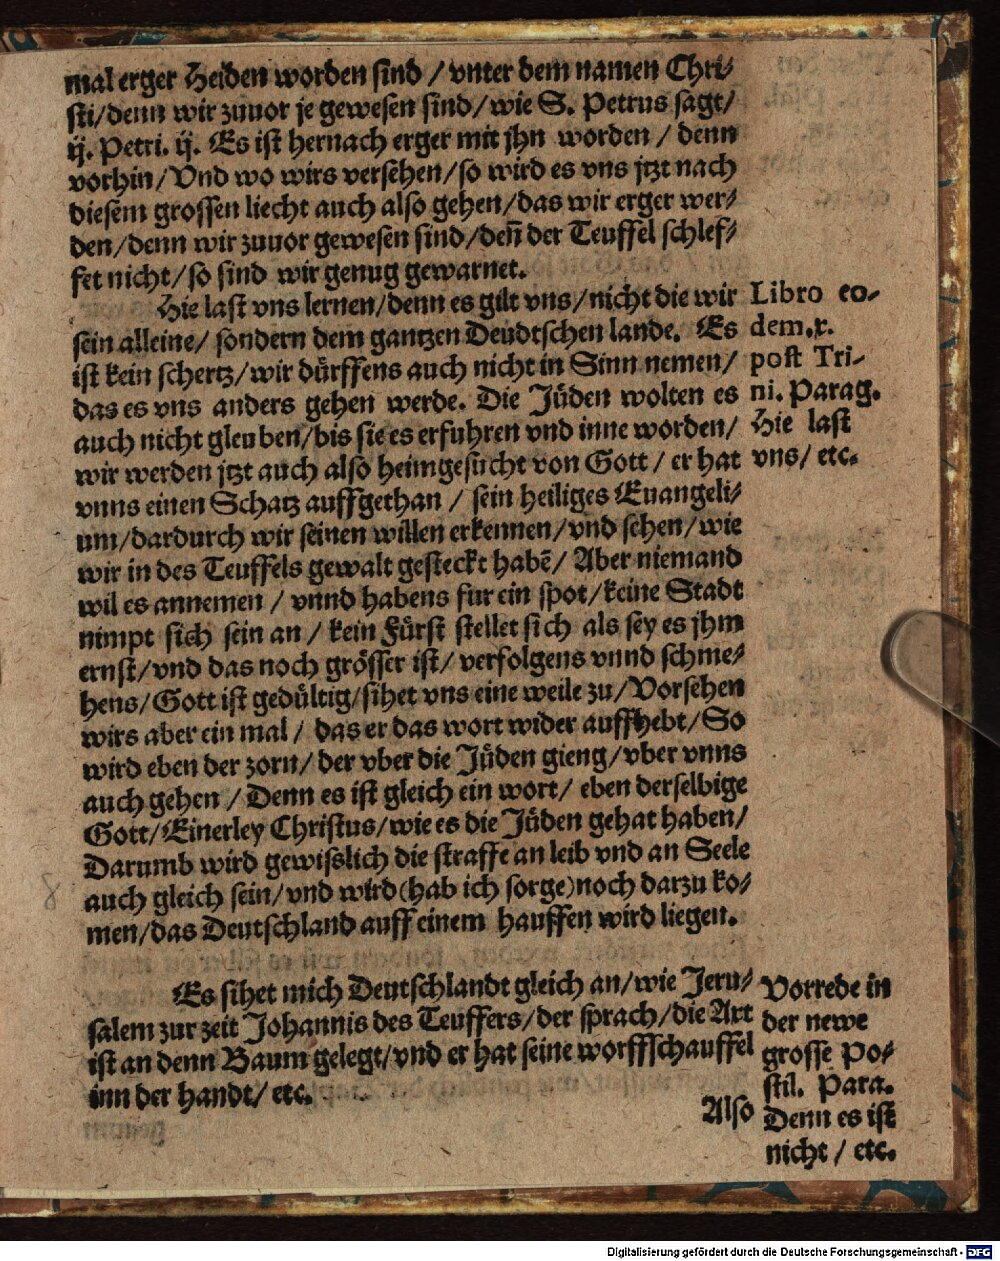 mal erger Heiden worden sind / vnter dem namen Chri⸗
sti/denn wir zuuor je gewesen sind/wie S. Petrus sagt/
ij. Petri. ij. Es ist hernach erger mit jhn worden / denn
vorhin/Vnd wo wirs versehen/so wird es vns jtzt nach
diesem grossen liecht auch also gehen/das wir erger wer⸗
den/denn wir zuuor gewesen sind/deñ der Teuffel schlef⸗
fet nicht/so sind wir genug gewarnet.
Hie last vns lernen/denn es gilt vns/nicht die wir
sein alleine/ sondern dem gantzen Deudtschen lande. Es
ist kein schertz/wir dürffens auch nicht in Sinn nemen/
das es vns anders gehen werde. Die Jüden wolten es
auch nicht gleuben/bis sie es erfuhren vnd inne worden/
wir werden jtzt auch also heimgesucht von Gott / er hat
vnns einen Schatz auffgethan / sein heiliges Euangeli⸗
um/dardurch wir seinen willen erkennen/vnd sehen/wie
wir in des Teuffels gewalt gesteckt habẽ/ Aber niemand
wil es annemen / vnnd habens fur ein spot/keine Stadt
nimpt sich sein an / kein Fürst stellet sich als sey es jhm
ernst/vnd das noch grösser ist/ verfolgens vnnd schme⸗
hens/Gott ist gedültig/sihet vns eine weile zu/Vorsehen
wirs aber ein mal / das er das wort wider auffhebt/So
wird eben der zorn/ der vber die Jüden gieng/vber vnns
auch gehen / Denn es ist gleich ein wort/ eben derselbige
Gott/Einerley Christus/wie es die Jüden gehat haben/
Darumb wird gewisslich die straffe an leib vnd an Seele
auch gleich sein/vnd wird(hab ich sorge)noch darzu ko⸗
men/das Deutschland auff einem hauffen wird liegen.
Libro eo-
dem.x.
post Tri-
ni. Parag.
Hie last
vns/ etc.
Es sihet mich Deutschlandt gleich an/wie Jeru⸗
salem zur zeit Johannis des Teuffers/der sprach/die Axt
ist an denn Baum gelegt/vnd er hat seine worffschauffel
inn der handt/ etc.
Vorrede in
der newe
grosse Po⸗
stil. Para.
Denn es ist
nicht / etc.
Also
Digitalisierung gefördert durch die Deutsche Forschungsgemeinschaft - DFG